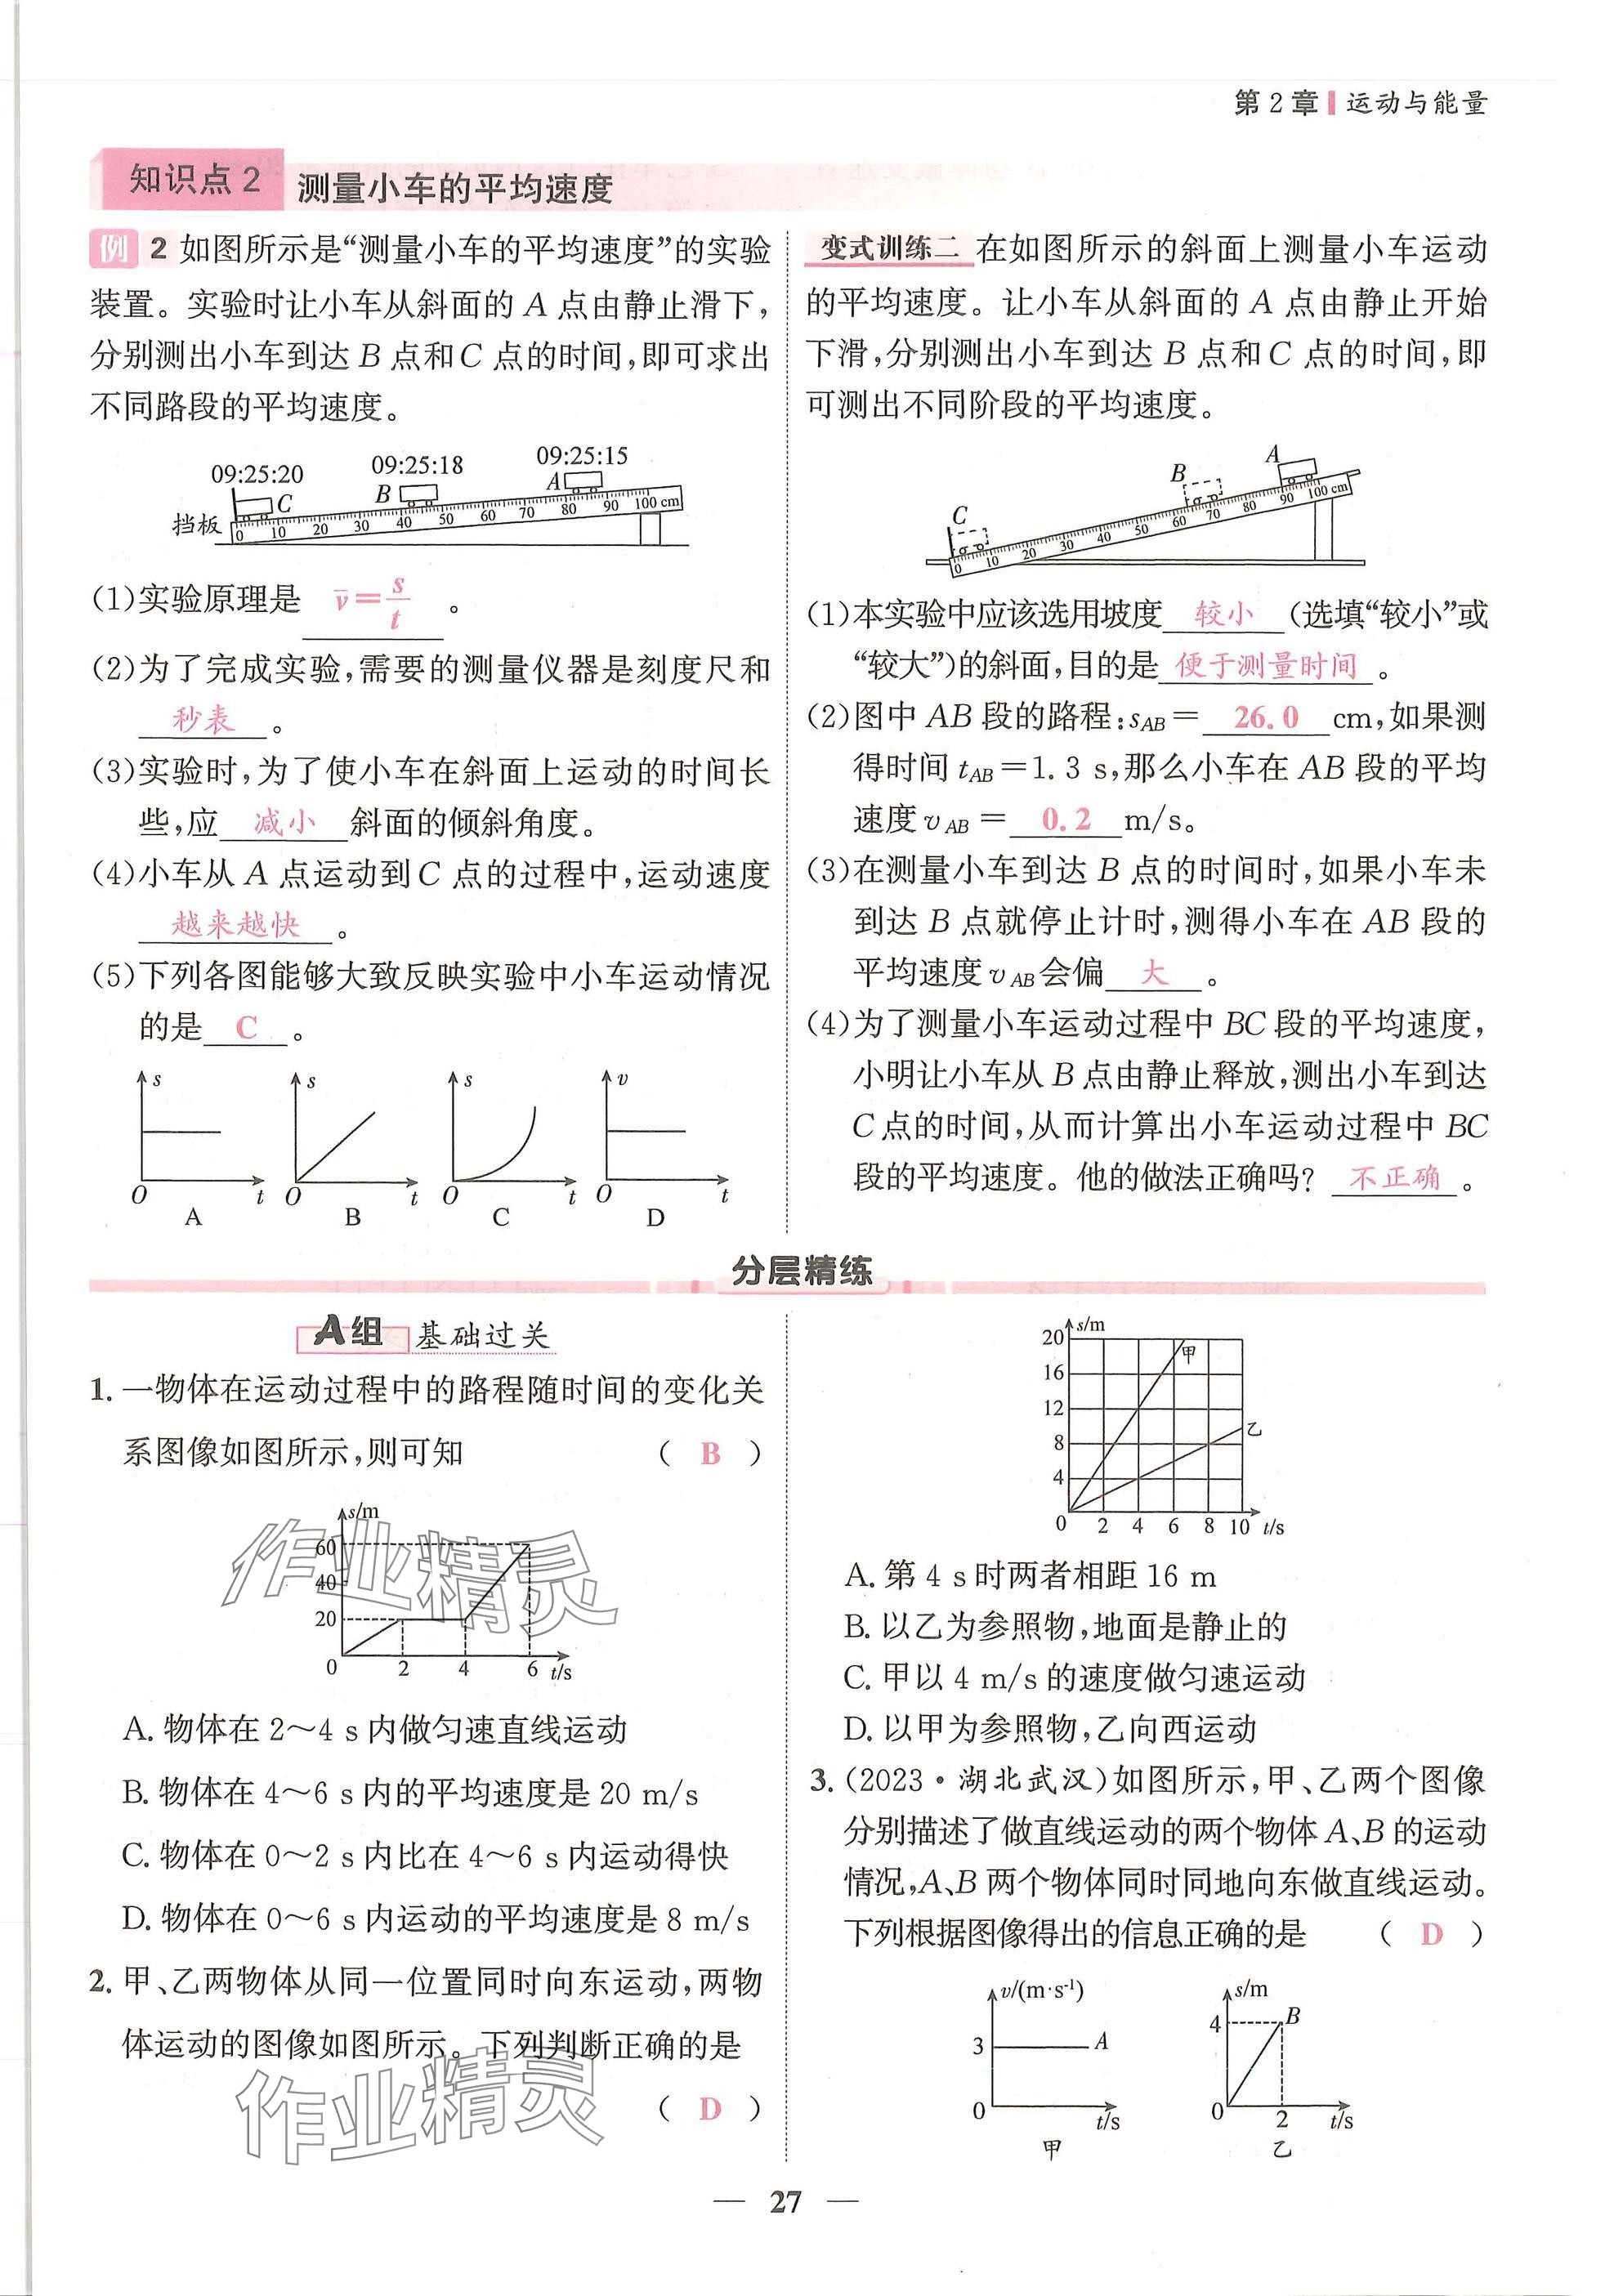 第2章 运动与能量
知识点2 测量小车的平均速度
例 2 如图所示是“测量小车的平均速度”的实验
装置。实验时让小车从斜面的 A 点由静止滑下，
分别测出小车到达 B 点和 C 点的时间，即可求出
不同路段的平均速度。
09:25:20 09:25:18 09:25:15
C B A
挡板 0 10 20 30 40 50 60 70 80 90 100 cm
(1)实验原理是 v̄=s/t 。
(2)为了完成实验，需要的测量仪器是刻度尺和
秒表 。
(3)实验时，为了使小车在斜面上运动的时间长
些，应 减小 斜面的倾斜角度。
(4)小车从 A 点运动到 C 点的过程中，运动速度
越来越快 。
(5)下列各图能够大致反映实验中小车运动情况
的是 C 。
s s s v
O t O t O t O t
A B C D
变式训练二 在如图所示的斜面上测量小车运动
的平均速度。让小车从斜面的 A 点由静止开始
下滑，分别测出小车到达 B 点和 C 点的时间，即
可测出不同阶段的平均速度。
A
B
C
0 10 20 30 40 50 60 70 80 90 100 cm
(1)本实验中应该选用坡度 较小 (选填“较小”或
“较大”)的斜面，目的是 便于测量时间 。
(2)图中 AB 段的路程：sAB= 26.0 cm，如果测
得时间 tAB=1.3 s，那么小车在 AB 段的平均
速度 vAB= 0.2 m/s。
(3)在测量小车到达 B 点的时间时，如果小车未
到达 B 点就停止计时，测得小车在 AB 段的
平均速度 vAB会偏 大 。
(4)为了测量小车运动过程中 BC 段的平均速度，
小明让小车从 B 点由静止释放，测出小车到达
C 点的时间，从而计算出小车运动过程中 BC
段的平均速度。他的做法正确吗？ 不正确 。
分层精练
A组 基础过关
1. 一物体在运动过程中的路程随时间的变化关
系图像如图所示，则可知 ( B )
s/m
60
40
20
0 2 4 6 t/s
A. 物体在 2～4 s 内做匀速直线运动
B. 物体在 4～6 s 内的平均速度是 20 m/s
C. 物体在 0～2 s 内比在 4～6 s 内运动得快
D. 物体在 0～6 s 内运动的平均速度是 8 m/s
2. 甲、乙两物体从同一位置同时向东运动，两物
体运动的图像如图所示。下列判断正确的是
( D )
s/m
20
甲
16
12
乙
8
4
0 2 4 6 8 10 t/s
A. 第 4 s 时两者相距 16 m
B. 以乙为参照物，地面是静止的
C. 甲以 4 m/s 的速度做匀速运动
D. 以甲为参照物，乙向西运动
3. (2023·湖北武汉)如图所示，甲、乙两个图像
分别描述了做直线运动的两个物体 A、B 的运动
情况，A、B 两个物体同时同地向东做直线运动。
下列根据图像得出的信息正确的是 ( D )
v/(m·s-1) s/m
3 A 4 B
0 t/s 0 2 t/s
甲 乙
作业精灵
作业精灵
— 27 —